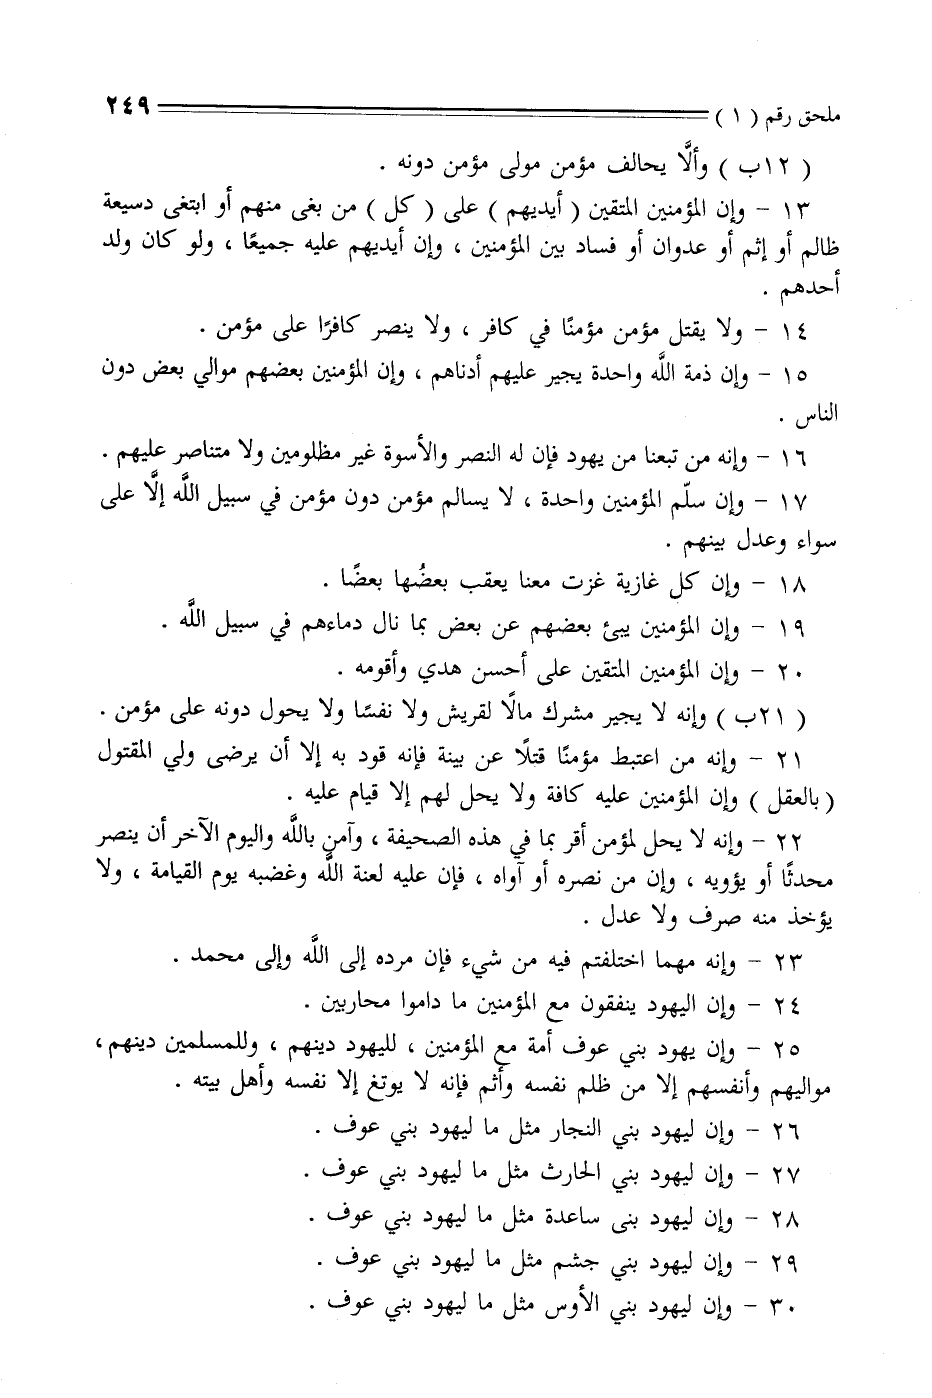 ملحق رقم ( ١ ) ٢٤٩
( ١٢ب ) وألَّا يحالف مؤمن مولى مؤمن دونه .
١٣ - وإن المؤمنين المتقين ( أيديهم ) على ( كل ) من بغى منهم أو ابتغى دسيعة
ظالم أو إثم أو عدوان أو فساد بين المؤمنين ، وإن أيديهم عليه جميعًا ، ولو كان ولد
أحدهم .
١٤ - ولا يقتل مؤمن مؤمنًا في كافر ، ولا ينصر كافرًا على مؤمن .
١٥ - وإن ذمة اللَّه واحدة يجير عليهم أدناهم ، وإن المؤمنين بعضهم موالي بعض دون
الناس .
١٦ - وإنه من تبعنا من يهود فإن له النصر والأسوة غير مظلومين ولا متناصر عليهم .
١٧ - وإن سلّم المؤمنين واحدة ، لا يسالم مؤمن دون مؤمن في سبيل اللَّه إلَّا على
سواء وعدل بينهم .
١٨ - وإن كل غازية غزت معنا يعقب بعضُها بعضًا .
١٩ - وإن المؤمنين يبئ بعضهم عن بعض بما نال دماءهم في سبيل اللَّه .
٢٠ - وإن المؤمنين المتقين على أحسن هدي وأقومه .
( ٢١ب ) وإنه لا يجير مشرك مالًا لقريش ولا نفسًا ولا يحول دونه على مؤمن .
٢١ - وإنه من اعتبط مؤمنًا قتلًا عن بينة فإنه قود به إلا أن يرضى ولي المقتول
( بالعقل ) وإن المؤمنين عليه كافة ولا يحل لهم إلا قيام عليه .
٢٢ - وإنه لا يحل لمؤمن أقر بما في هذه الصحيفة ، وآمن باللَّه واليوم الآخر أن ينصر
محدثًا أو يؤويه ، وإن من نصره أو آواه ، فإن عليه لعنة اللَّه وغضبه يوم القيامة ، ولا
يؤخذ منه صرف ولا عدل .
٢٣ - وإنه مهما اختلفتم فيه من شيء فإن مرده إلى اللَّه وإلى محمد .
٢٤ - وإن اليهود ينفقون مع المؤمنين ما داموا محاربين .
٢٥ - وإن يهود بني عوف أمة مع المؤمنين ، لليهود دينهم ، وللمسلمين دينهم ،
مواليهم وأنفسهم إلا من ظلم نفسه وأثم فإنه لا يوتغ إلا نفسه وأهل بيته .
٢٦ - وإن ليهود بني النجار مثل ما ليهود بني عوف .
٢٧ - وإن ليهود بني الحارث مثل ما ليهود بني عوف .
٢٨ - وإن ليهود بنى ساعدة مثل ما ليهود بني عوف .
٢٩ - وإن ليهود بني جشم مثل ما ليهود بني عوف .
٣٠ - وإن ليهود بني الأوس مثل ما ليهود بني عوف .